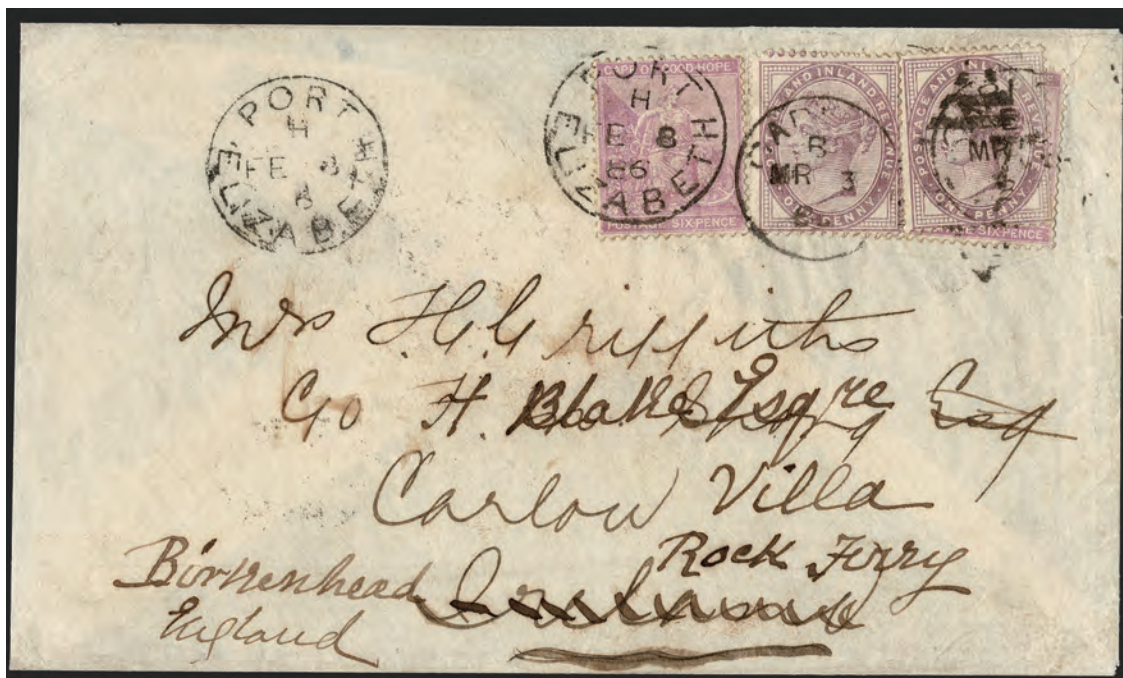 PORT ELIZABETH
H
FE 8
8
PORT ELIZABETH
H
FE 8
86
CAPE OF GOOD HOPE
POSTAGE SIX PENCE
POSTAGE AND INLAND REVENUE
ONE PENNY
MR 3
POSTAGE AND INLAND REVENUE
ONE PENNY
MR
SIX PENCE
Mrs H. Griffiths
C/o H. Esqre Esq
Carlow Villa
Rock Ferry
Birkenhead
England